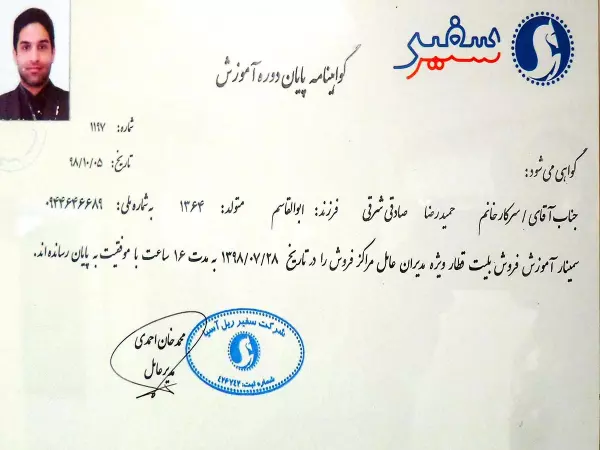 سفیر
سیر
گواهینامه پایان دوره آموزش
شماره: ۱۱۹۷
تاریخ: ۹۸/۱۰/۰۵
گواهی می شود:
جناب آقای / سرکار خانم حمیدرضا صادقی شرقی فرزند: ابوالقاسم متولد: ۱۳۶۴ به شماره ملی: ۰۹۴۴۶۴۶۶۸۹
سمینار آموزش فروش بلیت قطار ویژه مدیران عامل مراکز فروش را در تاریخ ۱۳۹۸/۰۷/۲۸ به مدت ۱۶ ساعت با موفقیت به پایان رسانده‌اند.
محمدخان احمدی
مدیرعامل
شرکت سفیر ریل آسیا
شماره ثبت: ۴۲۶۷۴۲